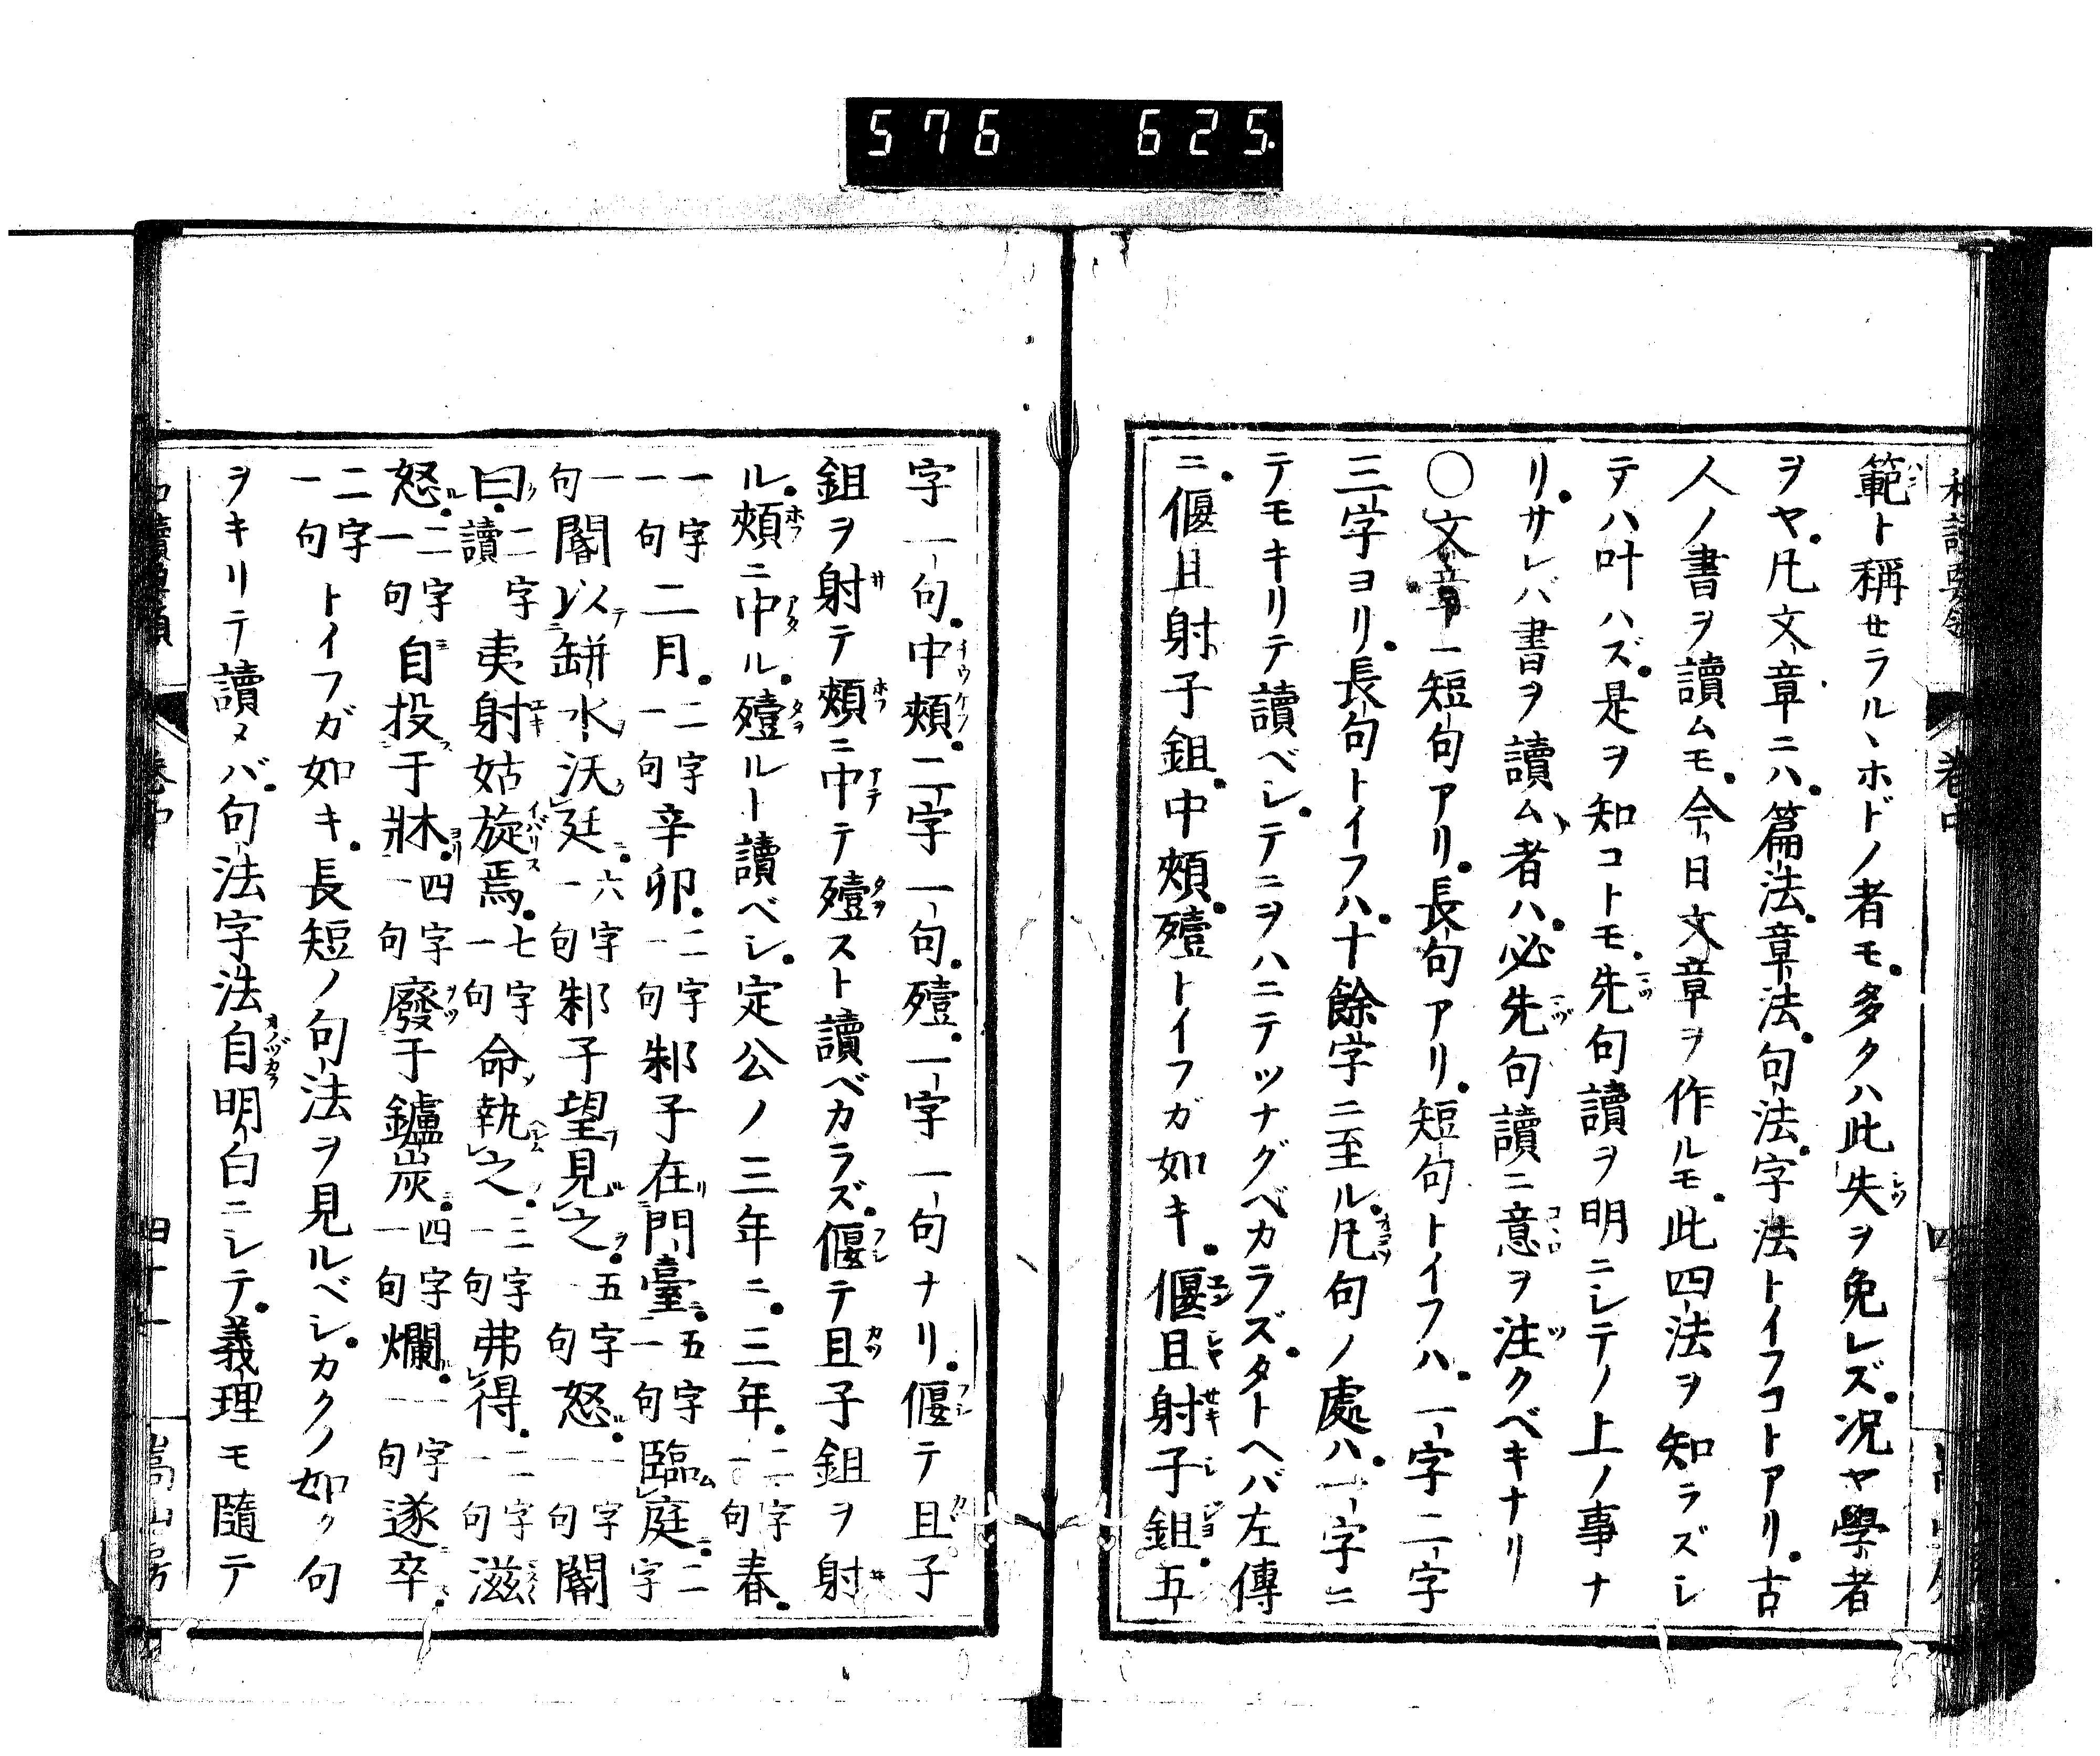 576 625.
範ト稱セラルヽホドノ者モ多クハ此失ヲ免レズ况ヤ學者
ヲヤ凡文章ニハ篇法章法句法字法トイフコトアリ古
人ノ書ヲ讀ムモ今日文章ヲ作ルモ此四法ヲ知ラズシ
テハ叶ハズ是ヲ知コトモ先句讀ヲ明ニシテノ上ノ事ナ
リサレバ書ヲ讀ム者ハ必先句讀ニ意ヲ注クベキナリ
○文章ニ短句アリ長句アリ短句トイフハ一字二字
三字ヨリ長句トイフハ十餘字ニ至ル凡句ノ處ハ一字ニ
テモキリテ讀ベシテニヲハニテツナグベカラズタトヘバ左傳
ニ偃且射子鉏中頰殪トイフガ如キ偃且射子鉏五
字一句中頰二字一句殪一字一句ナリ偃テ且子
鉏ヲ射テ頰ニ中テ殪スト讀ベカラズ偃テ且子鉏ヲ射
ル頰ニ中ル殪ルト讀ベシ定公ノ三年ニ三年二字一句春
一字一句二月二字一句辛卯二字一句邾子在門臺五字一句臨庭二字
一句閽以缾水沃廷六字一句邾子望見之五字一句怒一字一句閽
曰二字讀夷射姑旋焉七字一句命執之三字一句弗得二字一句滋
怒二字一句自投于牀四字一句廢于鑪炭四字一句爛一字一句遂卒
二字一句トイフガ如キ長短ノ句法ヲ見ルベシカクノ如ク句
ヲキリテ讀メバ句法字法自明白ニシテ義理モ隨テ
卷中
四十一
嵩山房